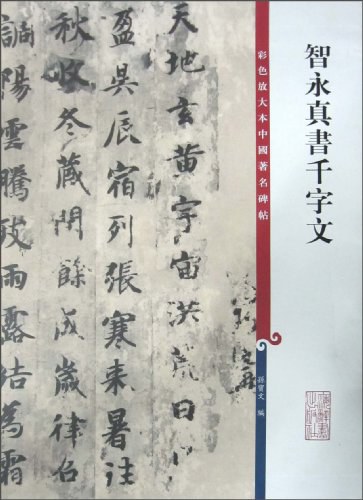 智永真書千字文
彩色放大本中國著名碑帖
孫寶文 編
天地玄黃宇宙洪荒日
盈昃辰宿列張寒来暑往
秋收冬藏閏餘成歲律召
調陽雲騰致雨露結為霜